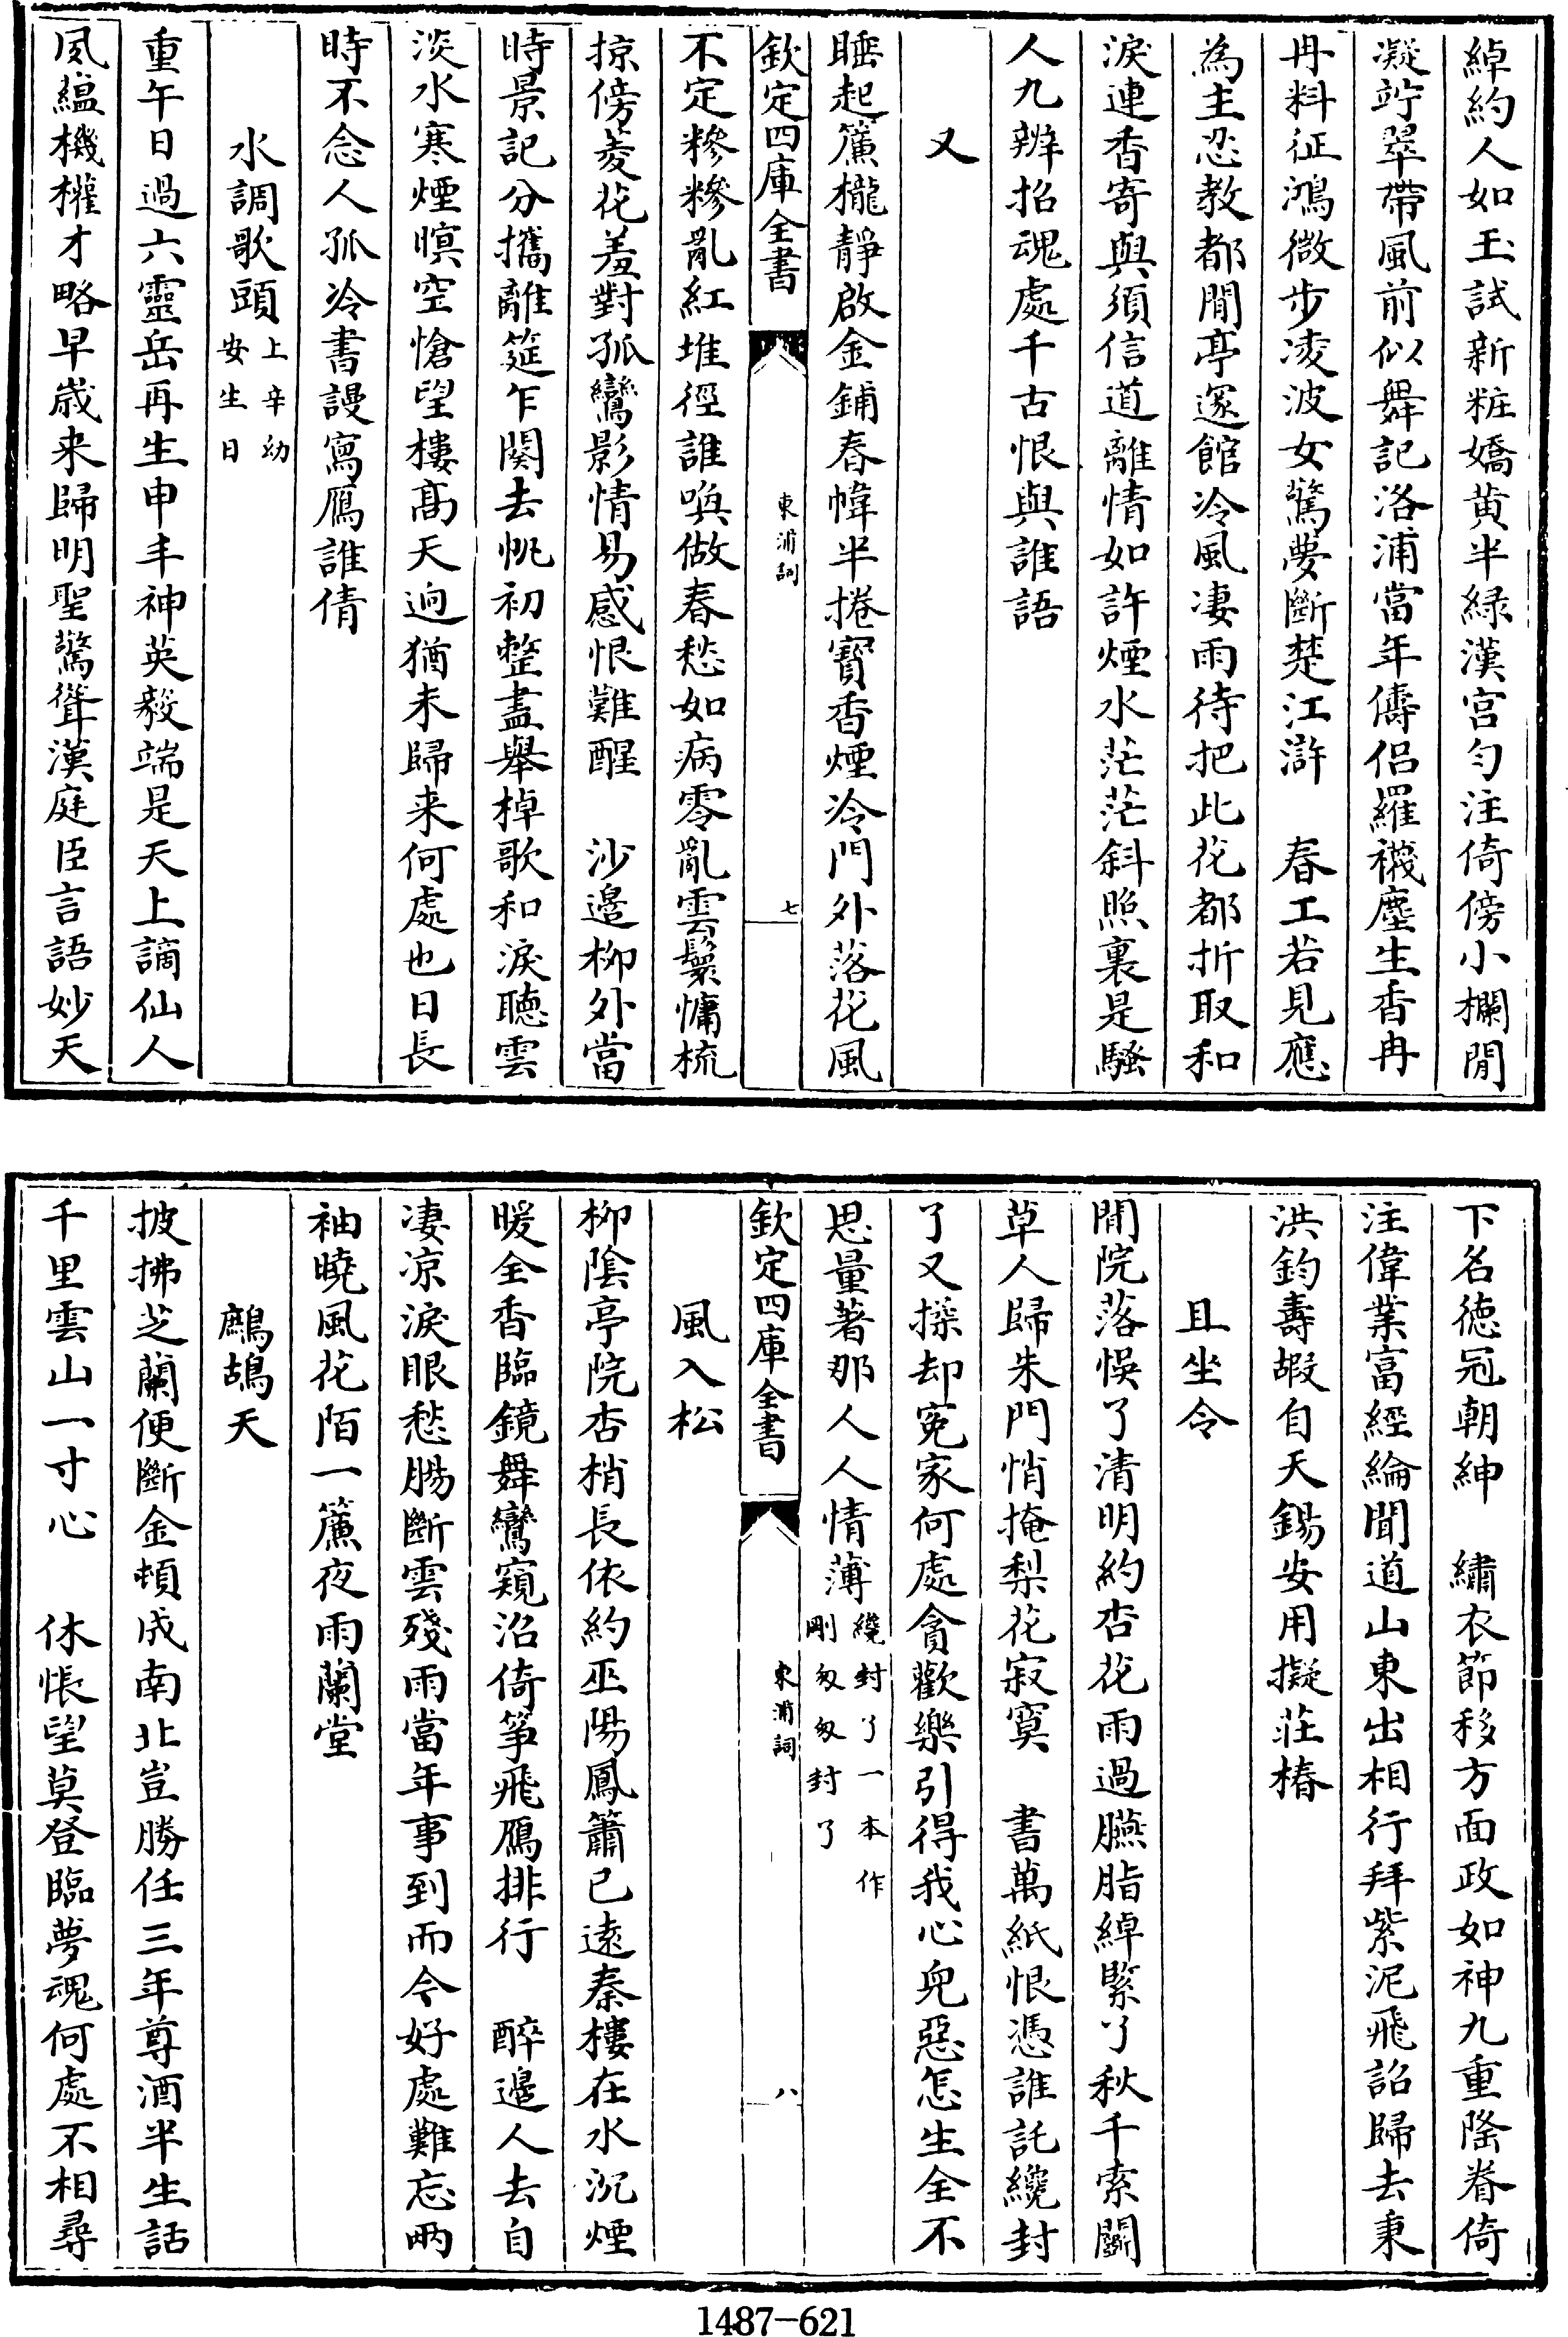 綽約人如玉試新粧嬌黄半緑漢宫匀注倚傍小欄閒
凝竚翠帶風前似舞記洛浦當年儔侣羅襪塵生香冉
冉料征鴻微步凌波女驚夢斷楚江滸　春工若見應
為主忍教都閒亭邃館冷風凄雨待把此花都折取和
淚連香寄與須信道離情如許煙水茫茫斜照裏是騷
人九辨招魂處千古恨與誰語
又
睡起簾櫳靜啟金鋪春幃半捲寳香煙冷門外落花風
欽定四庫全書
東浦詞
七
不定糝糝亂紅堆徑誰喚做春愁如病零亂雲鬟慵梳
掠傍菱花羞對孤鸞影情易感恨難醒　沙邉柳外當
時景記分攜離筵乍闋去帆初整畫舉棹歌和淚聽雲
淡水寒煙暝空愴望樓髙天逈猶未歸来何處也日長
時不念人孤冷書謾寫鴈誰倩
水調歌頭上辛幼安生日
重午日過六靈岳再生申丰神英毅端是天上謫仙人
夙蘊機權才略早歳来歸明聖驚聳漢庭臣言語妙天
下名徳冠朝紳　繡衣節移方面政如神九重隆眷倚
注偉業富經綸聞道山東出相行拜紫泥飛詔歸去秉
洪鈞壽嘏自天錫安用擬莊椿
且坐令
閒院落悞了清明約杏花雨過臙脂綽緊了秋千索鬬
草人歸朱門悄掩梨花寂寞　書萬紙恨憑誰託纔封
了又揉却寃家何處貪歡樂引得我心兒惡怎生全不
思量著那人人情薄纔封了一本作剛匆匆封了
欽定四庫全書
東浦詞
八
風入松
柳陰亭院杏梢長依約巫陽鳳簫已逺秦樓在水沉煙
暖全香臨鏡舞鸞窺沼倚筝飛鴈排行　醉邉人去自
凄涼淚眼愁腸斷雲殘雨當年事到而今好處難忘兩
袖曉風花陌一簾夜雨蘭堂
鷓鴣天
披拂芝蘭便斷金頓成南北豈勝任三年尊酒半生話
千里雲山一寸心　休悵望莫登臨夢魂何處不相尋
1487-621